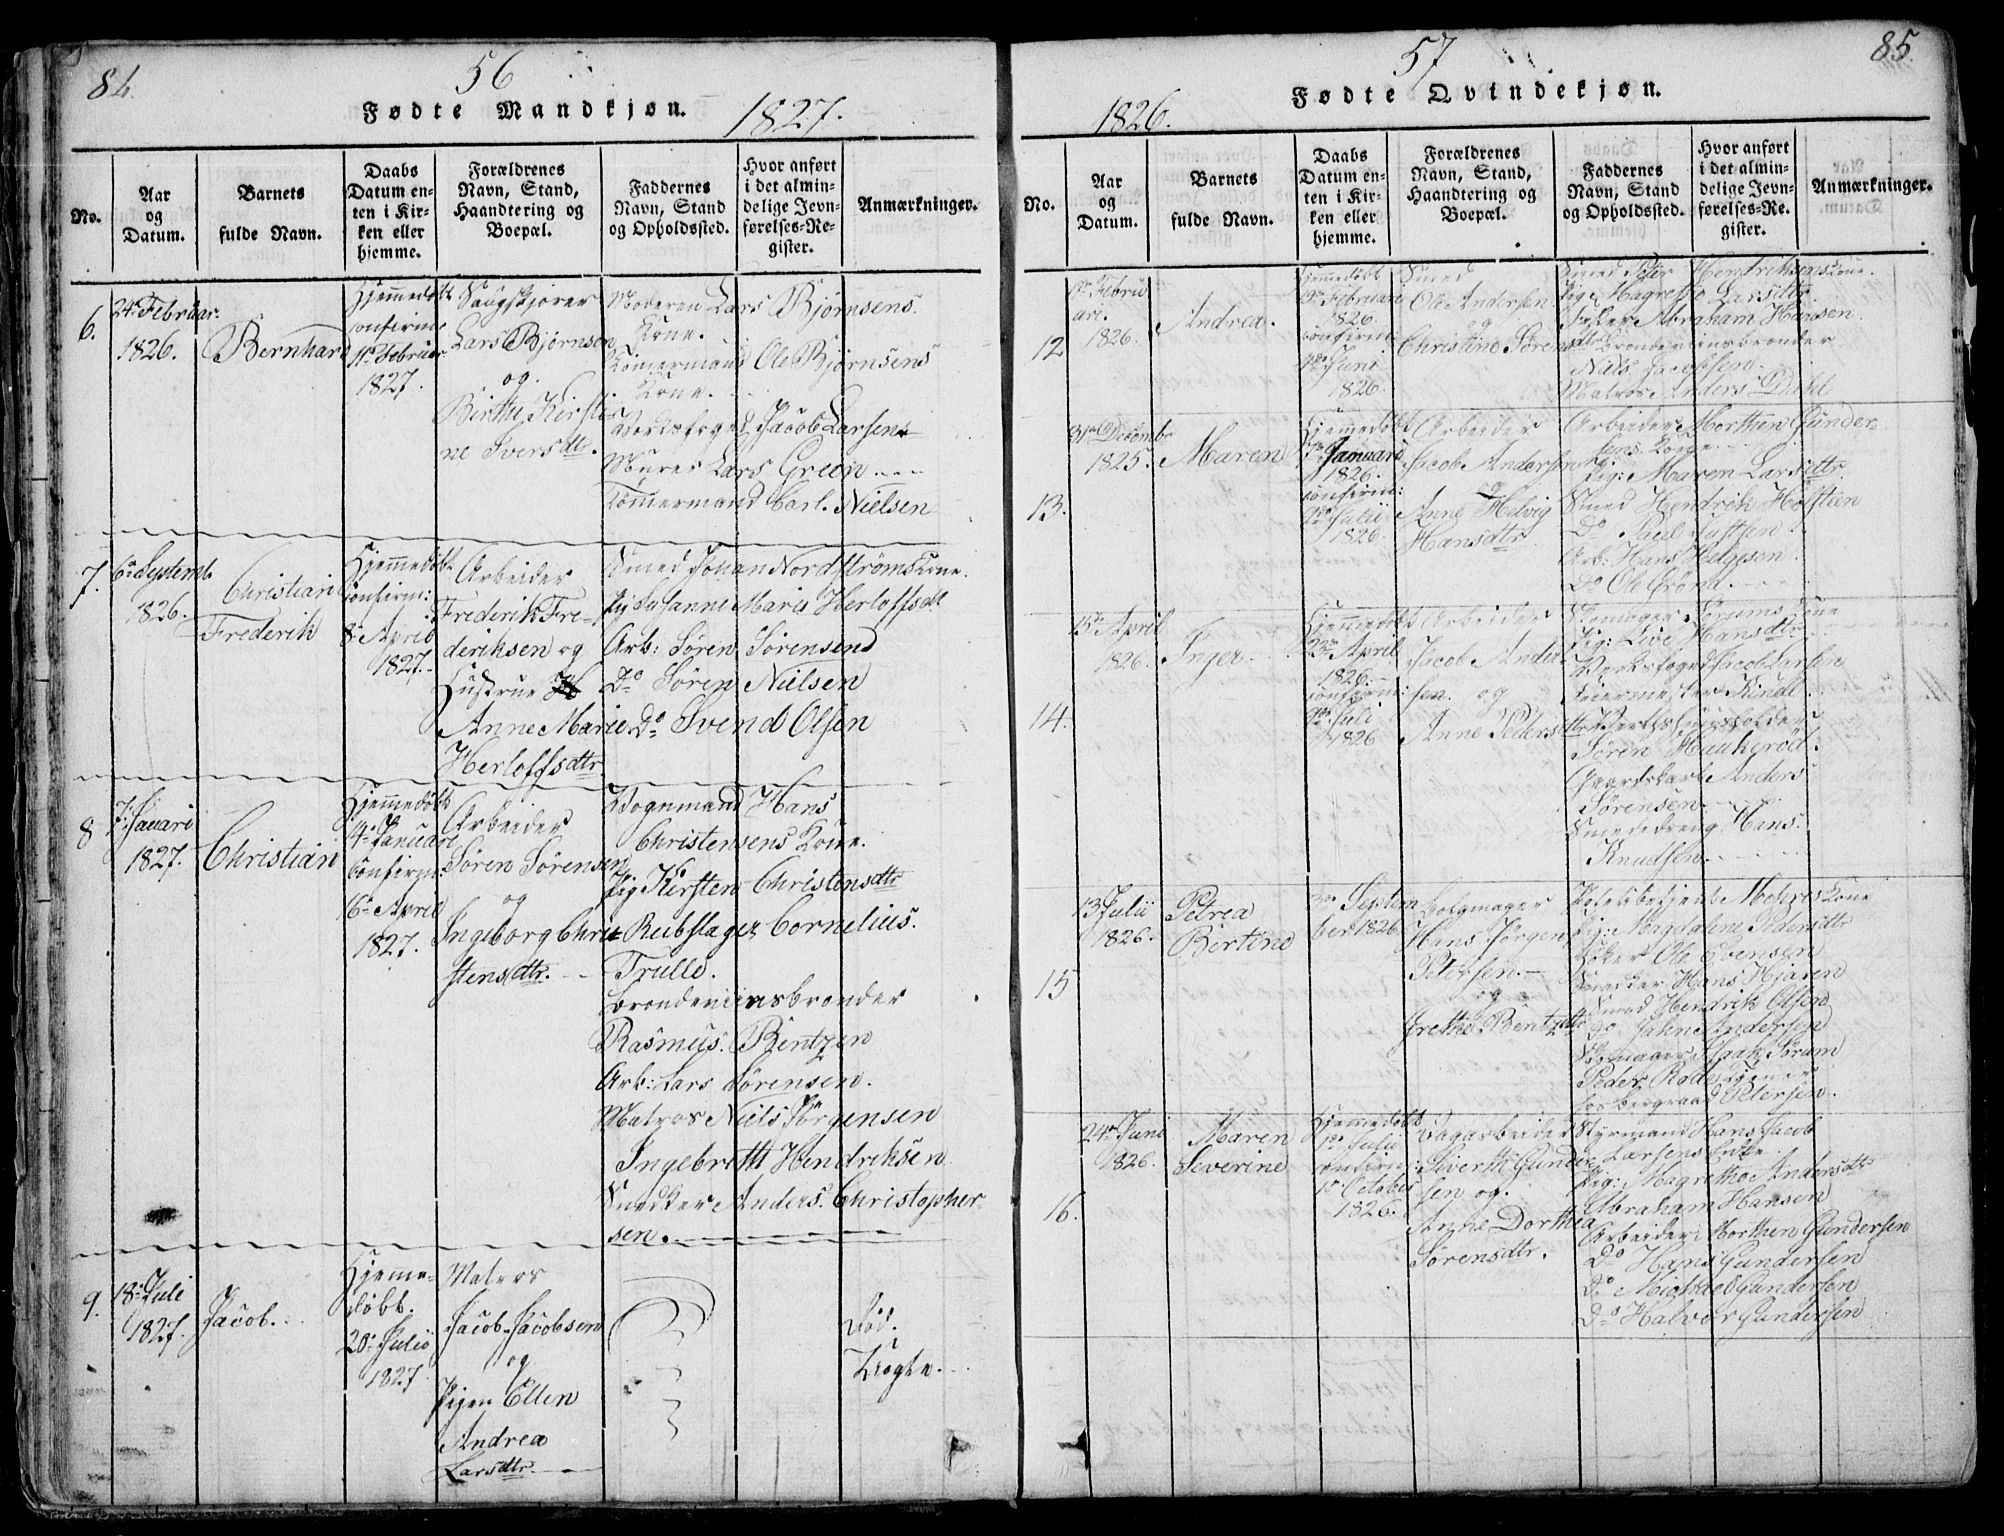 84.
56
Fødte Mandkjøn.
1827.
No.
Aar
og
Datum.
Barnets
fulde Navn.
Daabs
Datum en-
ten i Kir-
ken eller
hjemme.
Forældrenes
Navn, Stand,
Haandtering og
Boepæl.
Faddernes
Navn, Stand
og Opholdssted.
Hvor anført
i det almin-
delige Jevn-
førelses-Re-
gister.
Anmærkninger.
6.
24de Februar
1826.
Bernhard
Hjemmedøbt
confirm
11te Februar
1827.
Saugskjører
Lars Bjørnsen
og
Birthe Kirsti-
ne Iversdtr.
Moderen Lars Bjørnsens
Kone.
Tømermand Ole Bjørnsens
Kone.
Jacob Larsen
Murer Lars Green
Tømmermand Carl Nielsen
7.
6te Septemb.
1826.
Christian
Frederik
Hjemmedøbt
confirm:
8de April
1827.
Arbeider
Frederik Fre-
deriksen og
Hustrue
Anne Marie
Herloffsdtr
Smed Johan Nordstrøms Kone.
Pig Susanne Marie Herloffsdtr
Arb: Søren Sørensen
Do Søren Nielsen
Do Svend Olsen
8
7de Januari
1827.
Christian
Hjemmedøbt
14de Januari
Confirm
16de April
1827.
Arbeider
Søren Sørensen
og
Ingeborg Chri-
stensdtr.
Vognmand Hans
Christensens Kone.
Pig Kirsten Christensdtr
Reibslager Cornelius
Trulle.
Brændeviinsbrænder
Rasmus Bentzen
Arb: Lars Sørensen.
Matros Niels Jørgensen
Ingebreth Hendriksen
Snedker Anders Christopher-
sen.
9.
18de Juli
1827.
Jacob.
Hjemme-
døbt.
20de Julii
1827
Matros
Jacob Jacobsen
og
Pigen Ellen
Andrea
Larsdtr
Død.
Uægte.
57
85.
Fødte Qvindekjøn.
1826.
No.
Aar
og
Datum.
Barnets
fulde Navn.
Daabs
Datum en-
ten i Kir-
ken eller
hjemme.
Forældrenes
Navn, Stand,
Haandtering og
Boepæl.
Faddernes
Navn, Stand
og Opholdssted.
Hvor anført
i det almin-
delige Jevn-
førelses-Re-
gister.
Anmærkninger.
12
Febru
ari.
1826.
Andrea.
Hjemmedøbt
Februari
1826.
confirm:
Juni
1826.
Smed
Ole Andersen
og
Christine Sørensdtr
Smed Peter Hendriksens Kone.
Pig Magrethe Larsdtr.
Abraham Hansen.
Brændeviinsbrænder
Niels Jacobsen
Matros Anders Dahl
13.
31te Decembr
1825.
Maren
Hjemmedøbt
Januari
1826.
confirm:
Julii
1826.
Arbeider
Jacob Andersen
og
Anne Helvig
Hansdtr
Arbeider Morthen Gunder-
sens Kone
Pig: Maren Larsdtr
Smed Hendrik Holstien
Do Paul
Arb: Hans Helgesen
Do Ole Grønd.
14.
15de April
1826.
Inger.
Hjemmedøbt
23de April
1826.
confirm:
Juli
1826
Arbeider
Jacob Ander-
sen. og
Anne Pedersdtr
Skomager Kone
Pig: Live Hansdtr
Jacob Larsen
Kindt.
Søren Haukgrød.
Gaardskarl Anders
Sørensen
Smededreng Hans
Knudsen
15
13 Julii
1826.
Petrea
Bertine
3de Septem
ber 1826
Hans Jørgen
Petersen.
og
Grethe Bentzdtr
Mohrs Kone
Pig: Magdalene Pedersdtr
Ole Evensen
Snedker Hans
Smed Hendrik Olsen
Do John Andersen
Skomager Isaak Sørum
Peder Rod
Petersen.
16.
24de Juni
1826.
Maren
Severine
Hjemmedøbt
Julii
confirm:
1ste October
1826.
Dagarbeider
Siverth Gunder-
sen og.
Anne Dorthea
Sørensdtr.
Styrmand Hans Jacob
Larsens Enke.
Pig: Magrethe Andersdtr
Abraham Hansen
Arbeider Morthen Gundersen
Do Hans Gundersen
Do Michael Gundersen
Do Halvor Gundersen